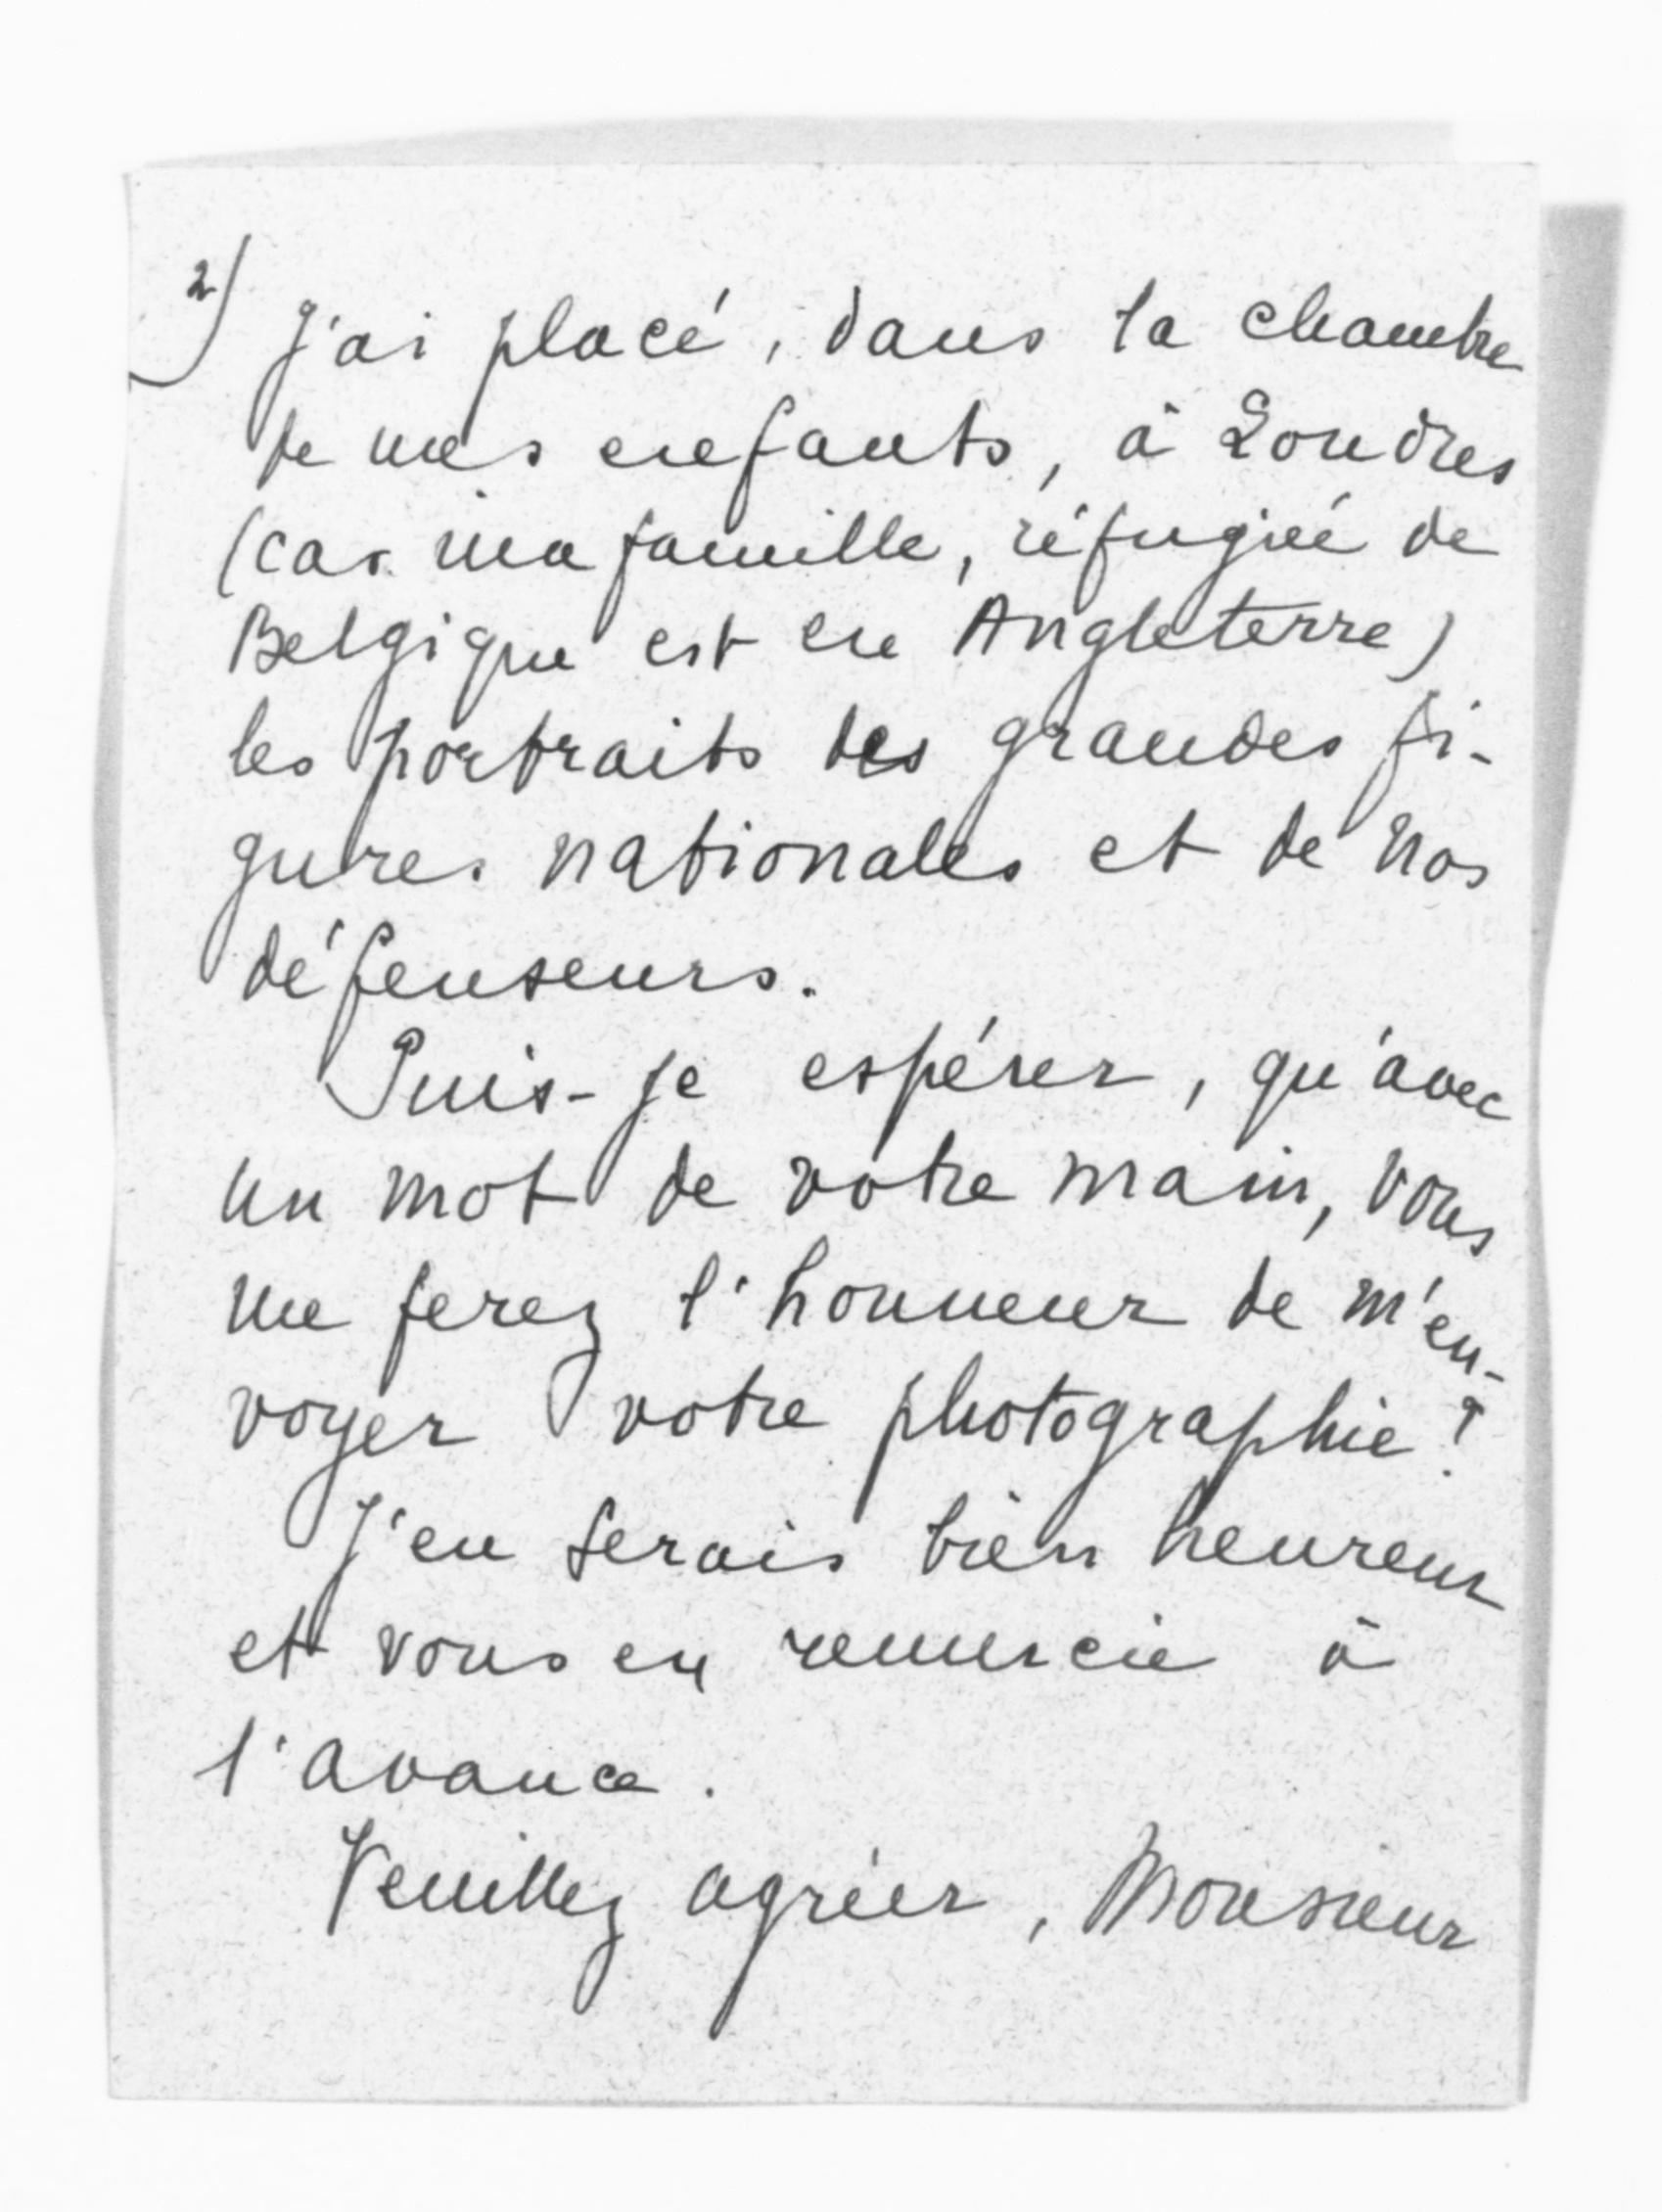 2) J'ai placé, dans la chambre
de mes enfants, à Londres
(car ma famille, réfugiée de
Belgique est en Angleterre)
les portraits des grandes fi-
gures nationales et de nos
défenseurs.
Puis-je espérer, qu'avec
un mot de votre main, vous
me ferez l'honneur de m'en-
voyer votre photographie?
J'en serais bien heureux
et vous en remercie à
l'avance.
Veuillez agréer, Monsieur